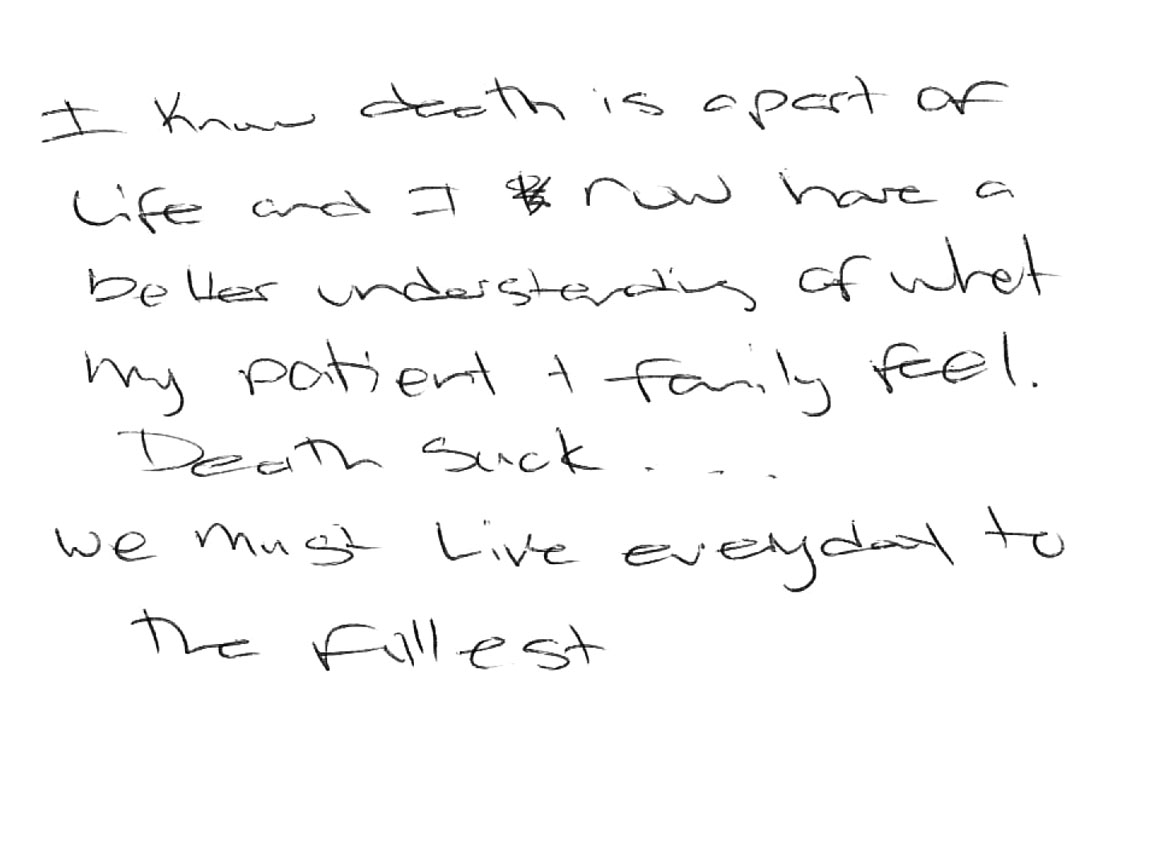 I know death is apart of
Life and I now have a
better understanding of what
my patient + family feel.
Death Suck....
we must Live everyday to
the fullest